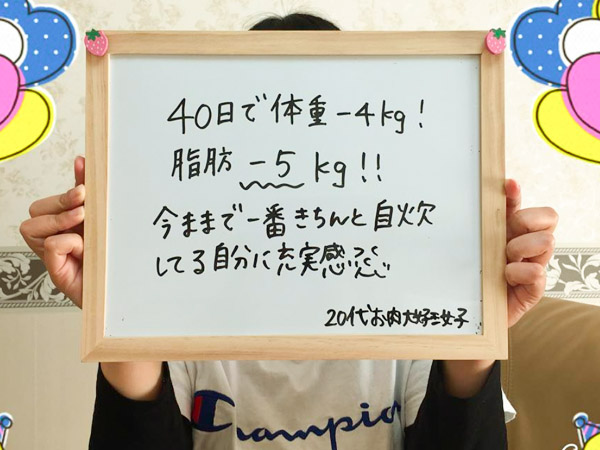 40日で体重－4kg！
脂肪－5kg！！
今までで一番きちんと自炊
してる自分に充実感
20代お肉大好き女子
Champion